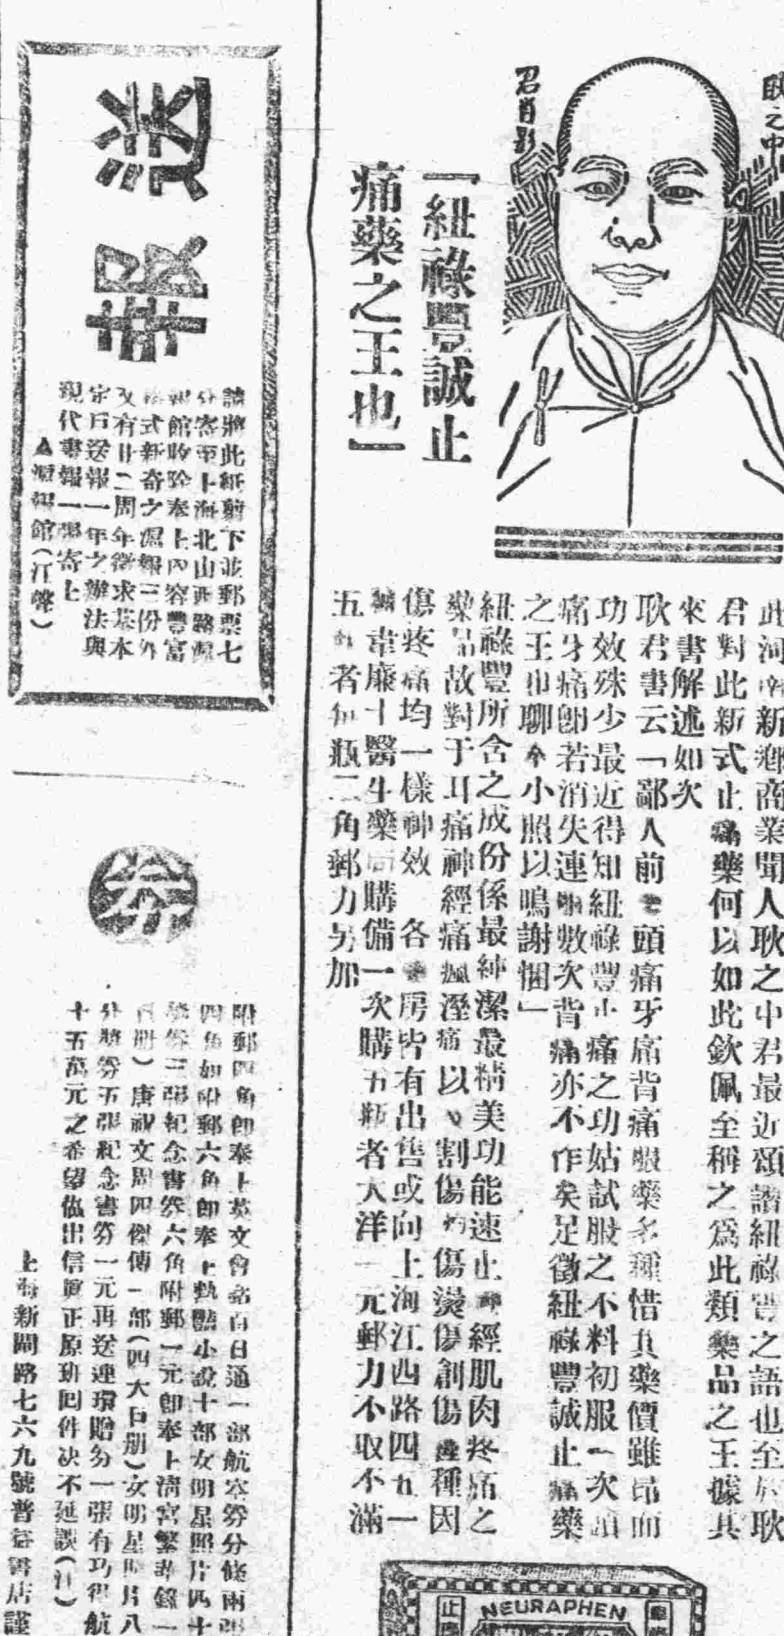 耿之中
君肖影
「紐祿豐誠止
痛藥之王也」
此河南新鄉商業聞人耿之中君最近頌讚紐祿豐之語也至於耿
君對此新式止痛藥何以如此欽佩至稱之爲此類藥品之王據其
來書解述如次
耿君書云「鄙人前患頭痛牙痛背痛服藥多種惜其藥價雖昂而
功效殊少最近得知紐祿豐止痛之功姑試服之不料初服一次頭
痛牙痛卽若消失連服數次背痛亦不作矣足徵紐祿豐誠止痛藥
之王也聊奉小照以鳴謝悃」
紐祿豐所含之成份係最純潔最精美功能速止神經肌肉疼痛之
藥品故對于耳痛神經痛瘋溼痛以及割傷灼傷燙傷創傷種因
傷疼痛均一樣神效 各藥房皆有出售或向上海江西路四五一
號韋廉士醫生藥局購備一次購五瓶者大洋一元郵力不取不滿
五瓶者每瓶二角郵力另加
NEURAPHEN
止
送報
請將此紙剪下並郵票七
分寄至上海北山西路
報館收除奉上內容豐富
格式新奇之報三份外
又有廿二周年徵求基本
定戶送報一年之辦法與
現代書報一張寄上
▲報館(江聲)
券
附郵四角卽奉上英文會話百日通一部航空券分條兩張
四角如附郵六角卽奉上小說十部女明星照片四十
獎券三張紀念書券六角附郵一元卽奉上清宮繁華錄一
冊)唐祝文周四傑傳一部(四大日冊)女明星照片八
分獎券五張紀念書券一元再送連環贈券一張有巧得航
十五萬元之希望倣出信眞正原班回件决不延誤(江)
上海新閘路七六九號普益書店謹